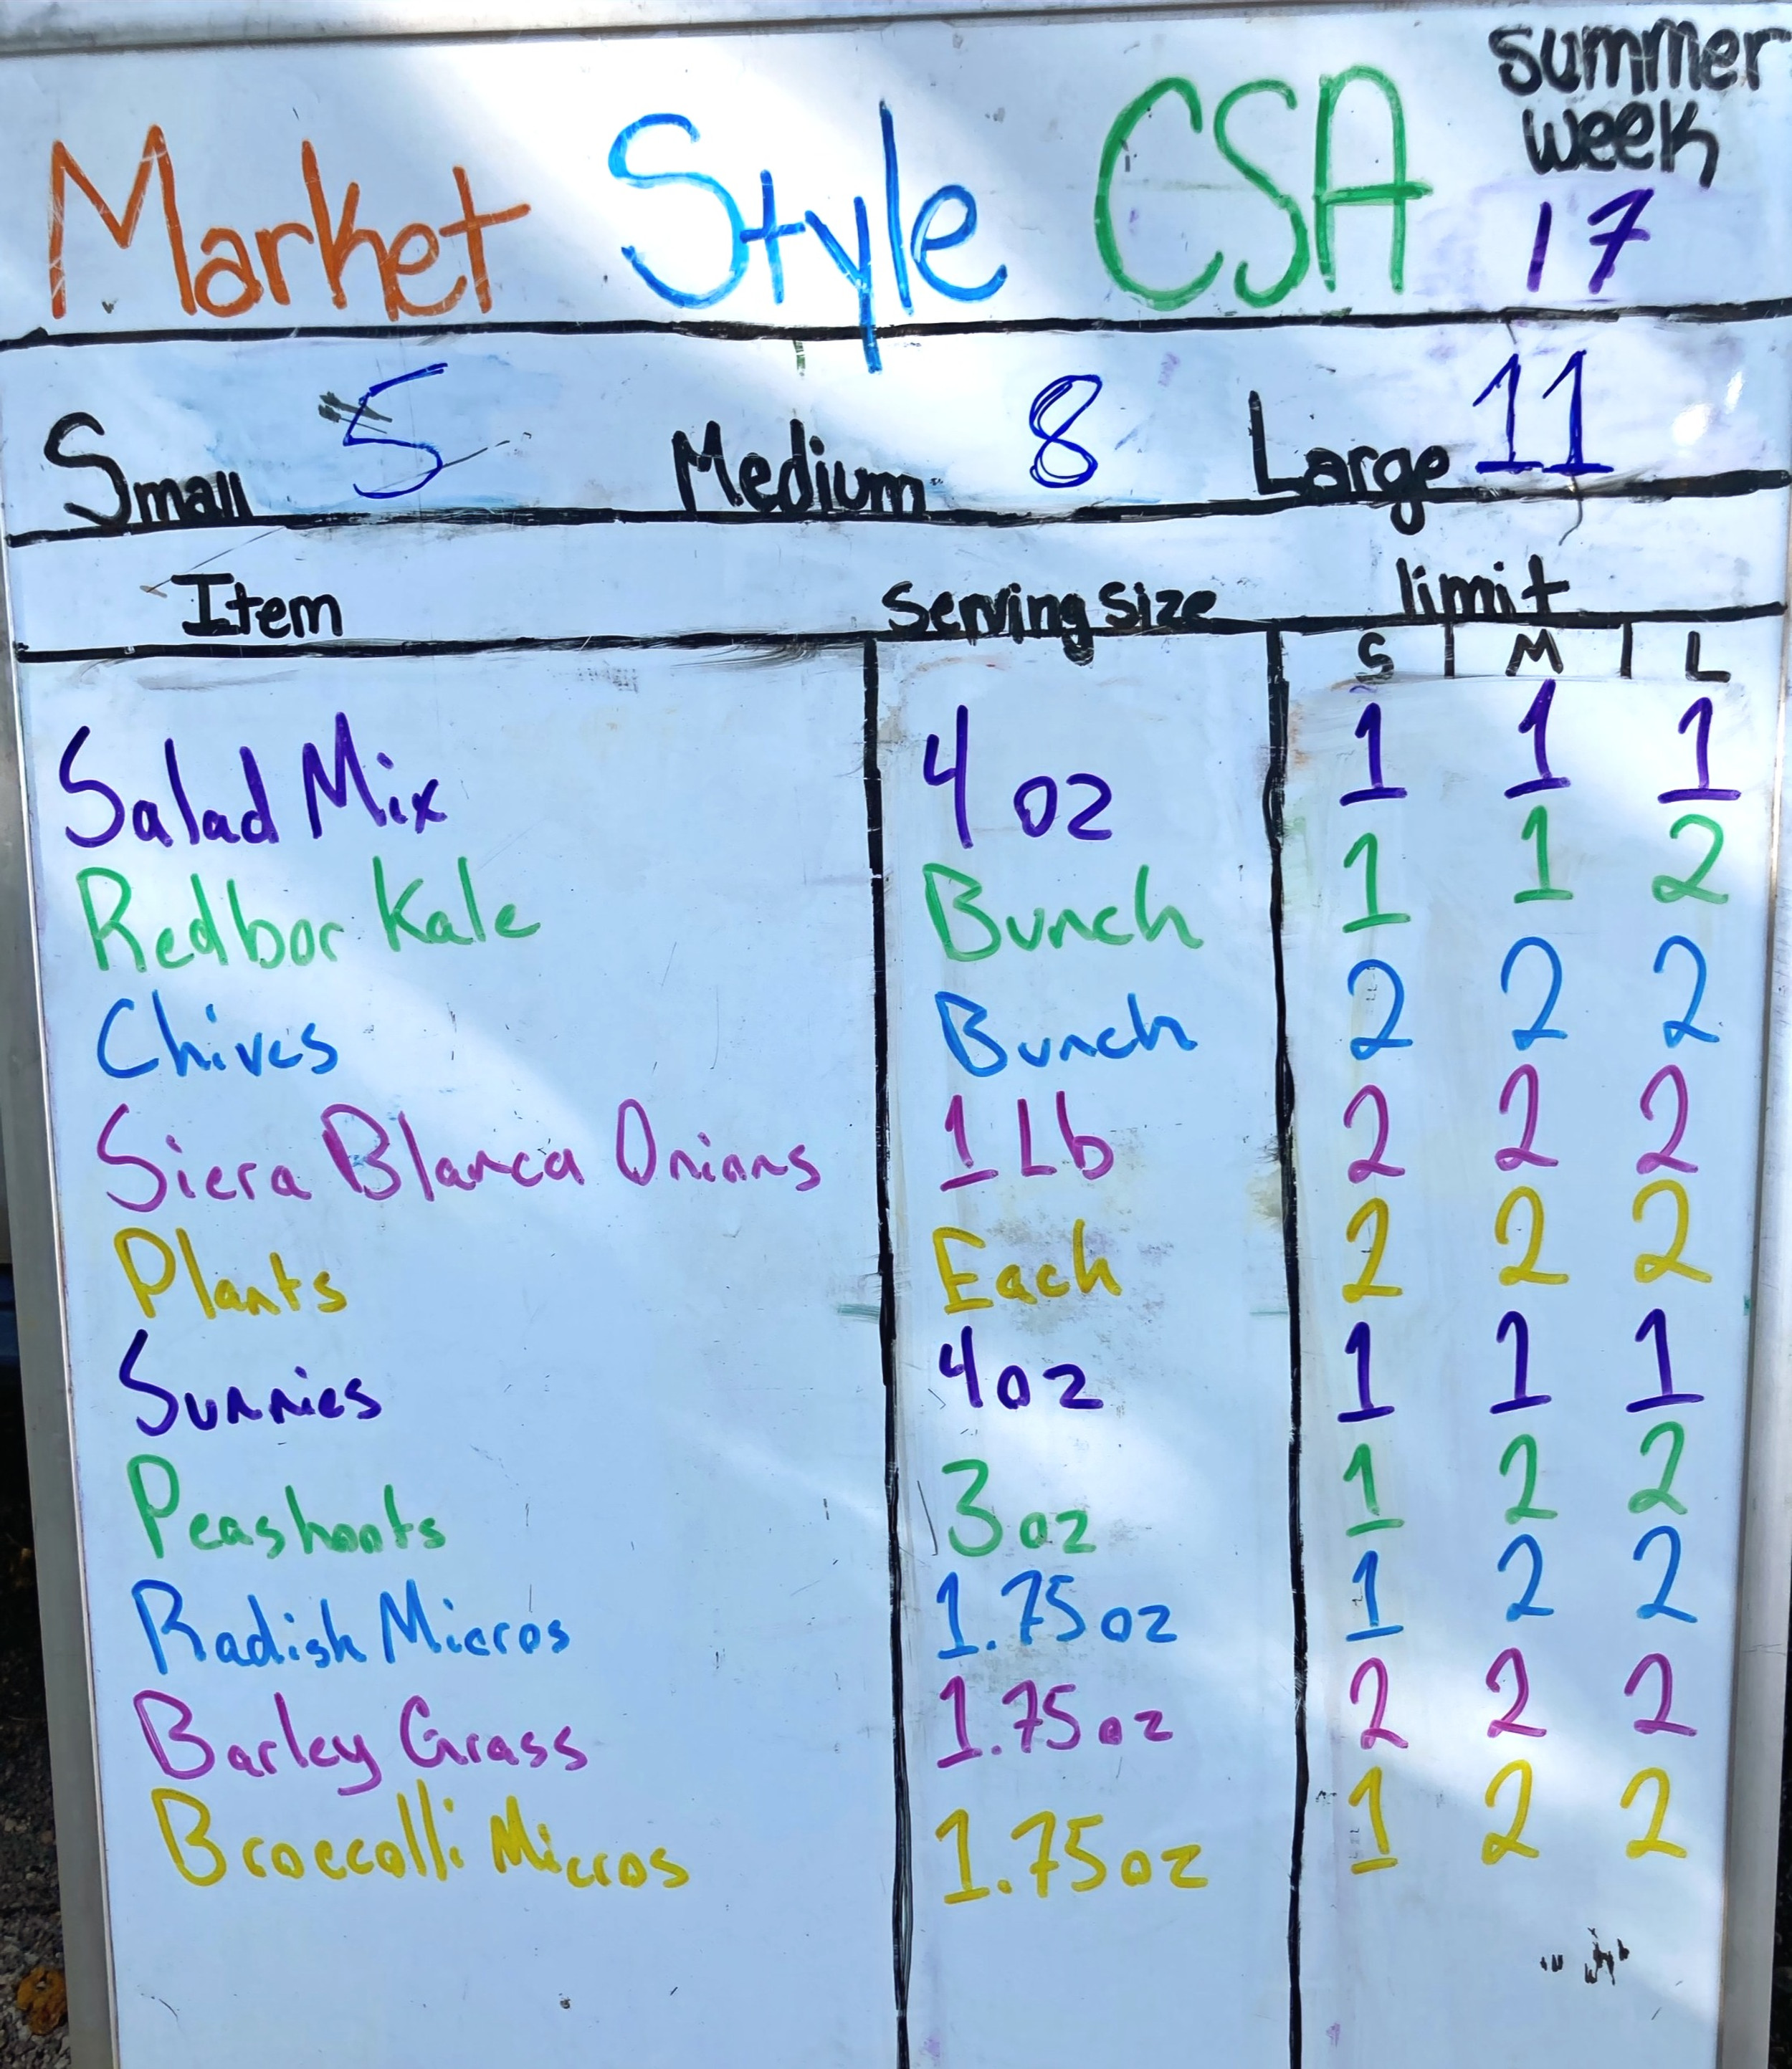 Market Style CSA summer week 17
Small 5 Medium 8 Large 11
Item Serving Size limit
S M L
Salad Mix 4 oz 1 1 1
Redbor Kale Bunch 1 1 2
Chives Bunch 2 2 2
Siera Blanca Onions 1 Lb 2 2 2
Plants Each 2 2 2
Sunnies 4 oz 1 1 1
Peashoots 3 oz 1 2 2
Radish Micros 1.75 oz 1 2 2
Barley Grass 1.75 oz 2 2 2
Broccolli Micros 1.75 oz 1 2 2